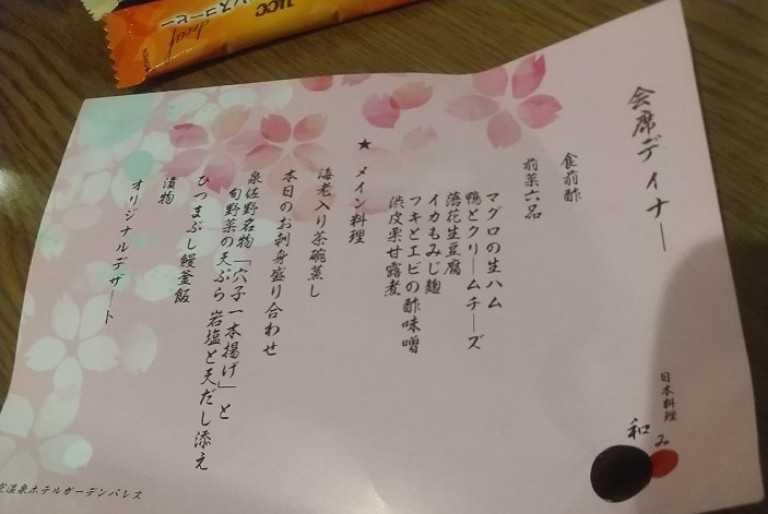 会席ディナー
食前酢
前菜六品
マグロの生ハム
鴨とクリームチーズ
落花生豆腐
イカもみじ麹
フキとエビの酢味噌
渋皮栗甘露煮
★ メイン料理
海老入り茶碗蒸し
本日のお刺身盛り合わせ
泉佐野名物「穴子一本揚げ」と
旬野菜の天ぷら 岩塩と天だし添え
ひつまぶし鰻釜飯
漬物
オリジナルデザート
日本料理
和み
温泉ホテルガーデンパレス
UCC
スコーヒー